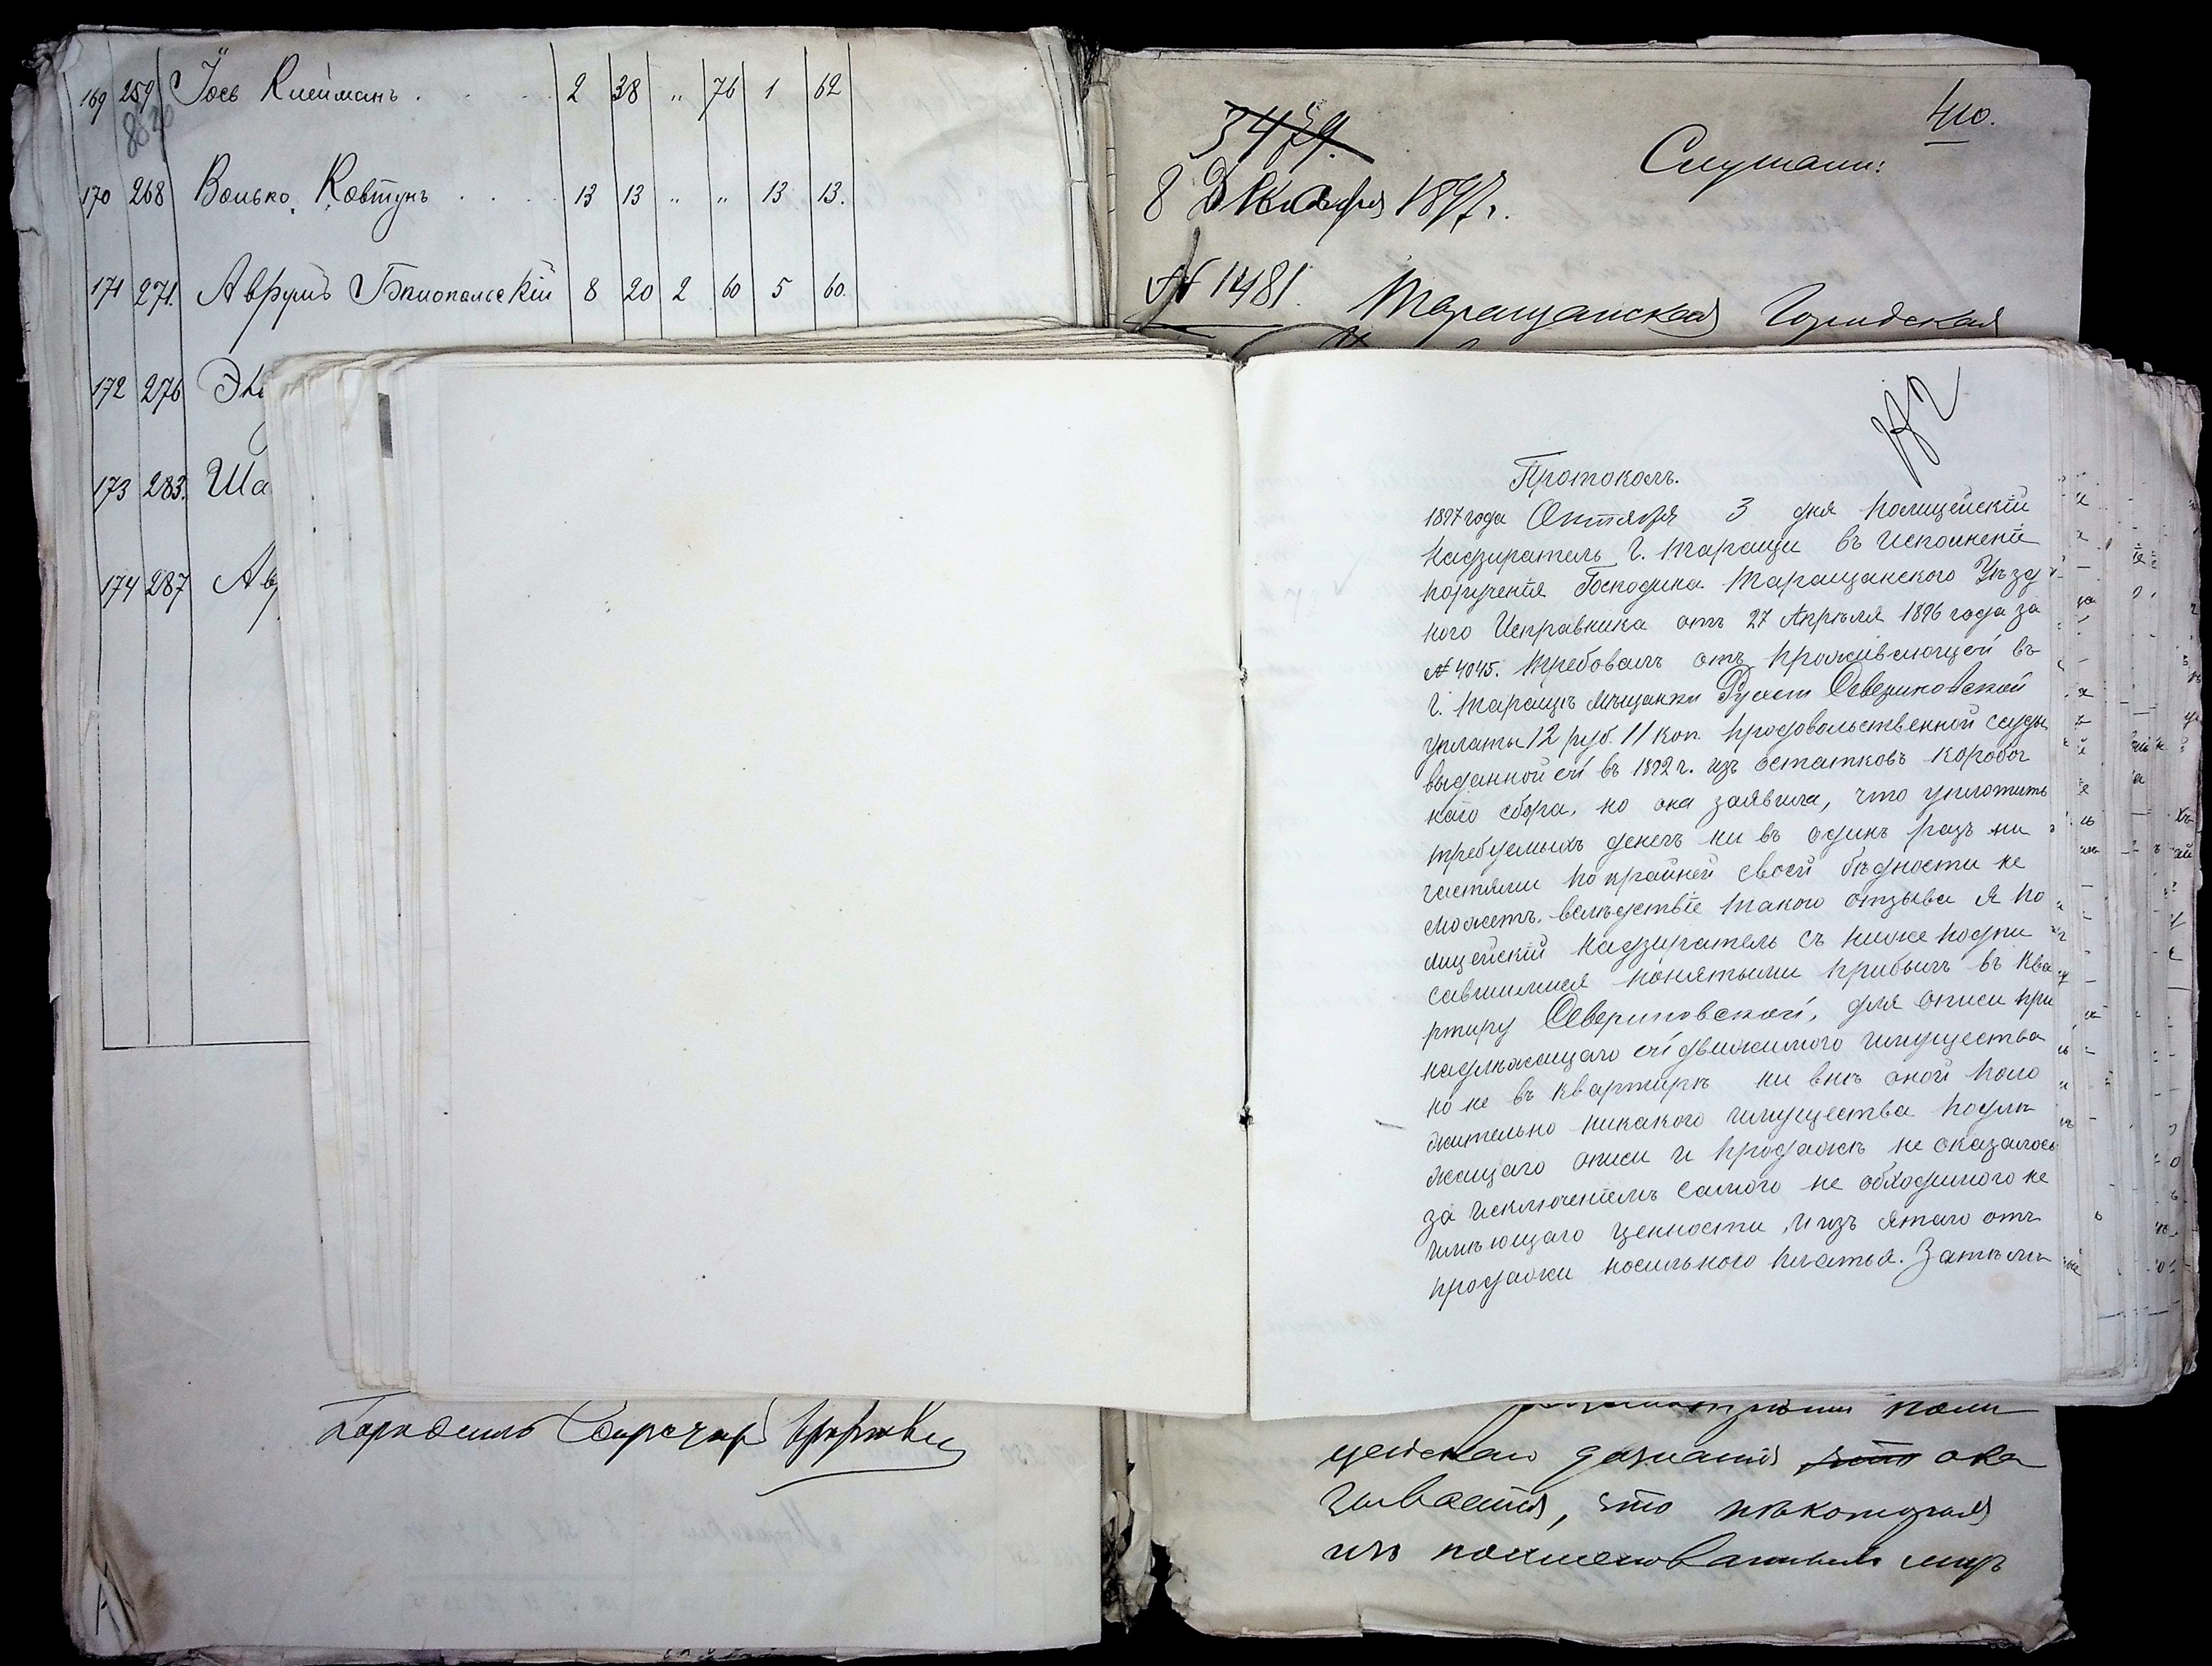 169 259 Іось Клейманъ . . . 2 38 " 76 1 62
170 268 Волько Ковтунъ . . . 13 13 " " 13 13.
171 271. Аврумъ Бялопольскій 8 20 2 60 5 60.
172 276
173 283. Ша
174 287 Ав
410.
Слушали:
8 Декабря 1897 г.
№ 1481.
Таращанская Городская
Протоколъ.
1897 года Октября 3 дня Полицейскій
Надзиратель г. Таращи въ исполненіе
порученія Господина Таращанского Уѣзд
ного Исправника отъ 27 Апрѣля 1896 года за
№ 4045. требовалъ отъ проживающей въ
г. Таращѣ мѣщанки Рухли Севериновской
уплаты 12 руб. 11 коп. продовольственной ссуды
выданной ей въ 1892 г. изъ остатковъ коробоч
наго сбора, но она заявила, что уплотить
требуемыхъ денегъ ни въ одинъ разъ ни
частями по крайней своей бѣдности не
можетъ, вслѣдствіе такого отзыва я По
лицейскій Надзиратель съ ниже подпи
савшимися понятыми прибылъ въ ква
ртиру Севериновской, для описи при
надлежащаго ей движимого имущества
но не въ квартирѣ ни внѣ оной поло
жительно никакого имущества подле
жащаго описи и продажѣ не оказалось
за исключеніемъ самого не обходимого не
имѣющаго ценности, и изъ ятаго отъ
продажи носильного платья. Затѣмъ
поли
цейскаго дознанія ока
зывается, что нѣкоторыя
изъ поименованныхъ лицъ